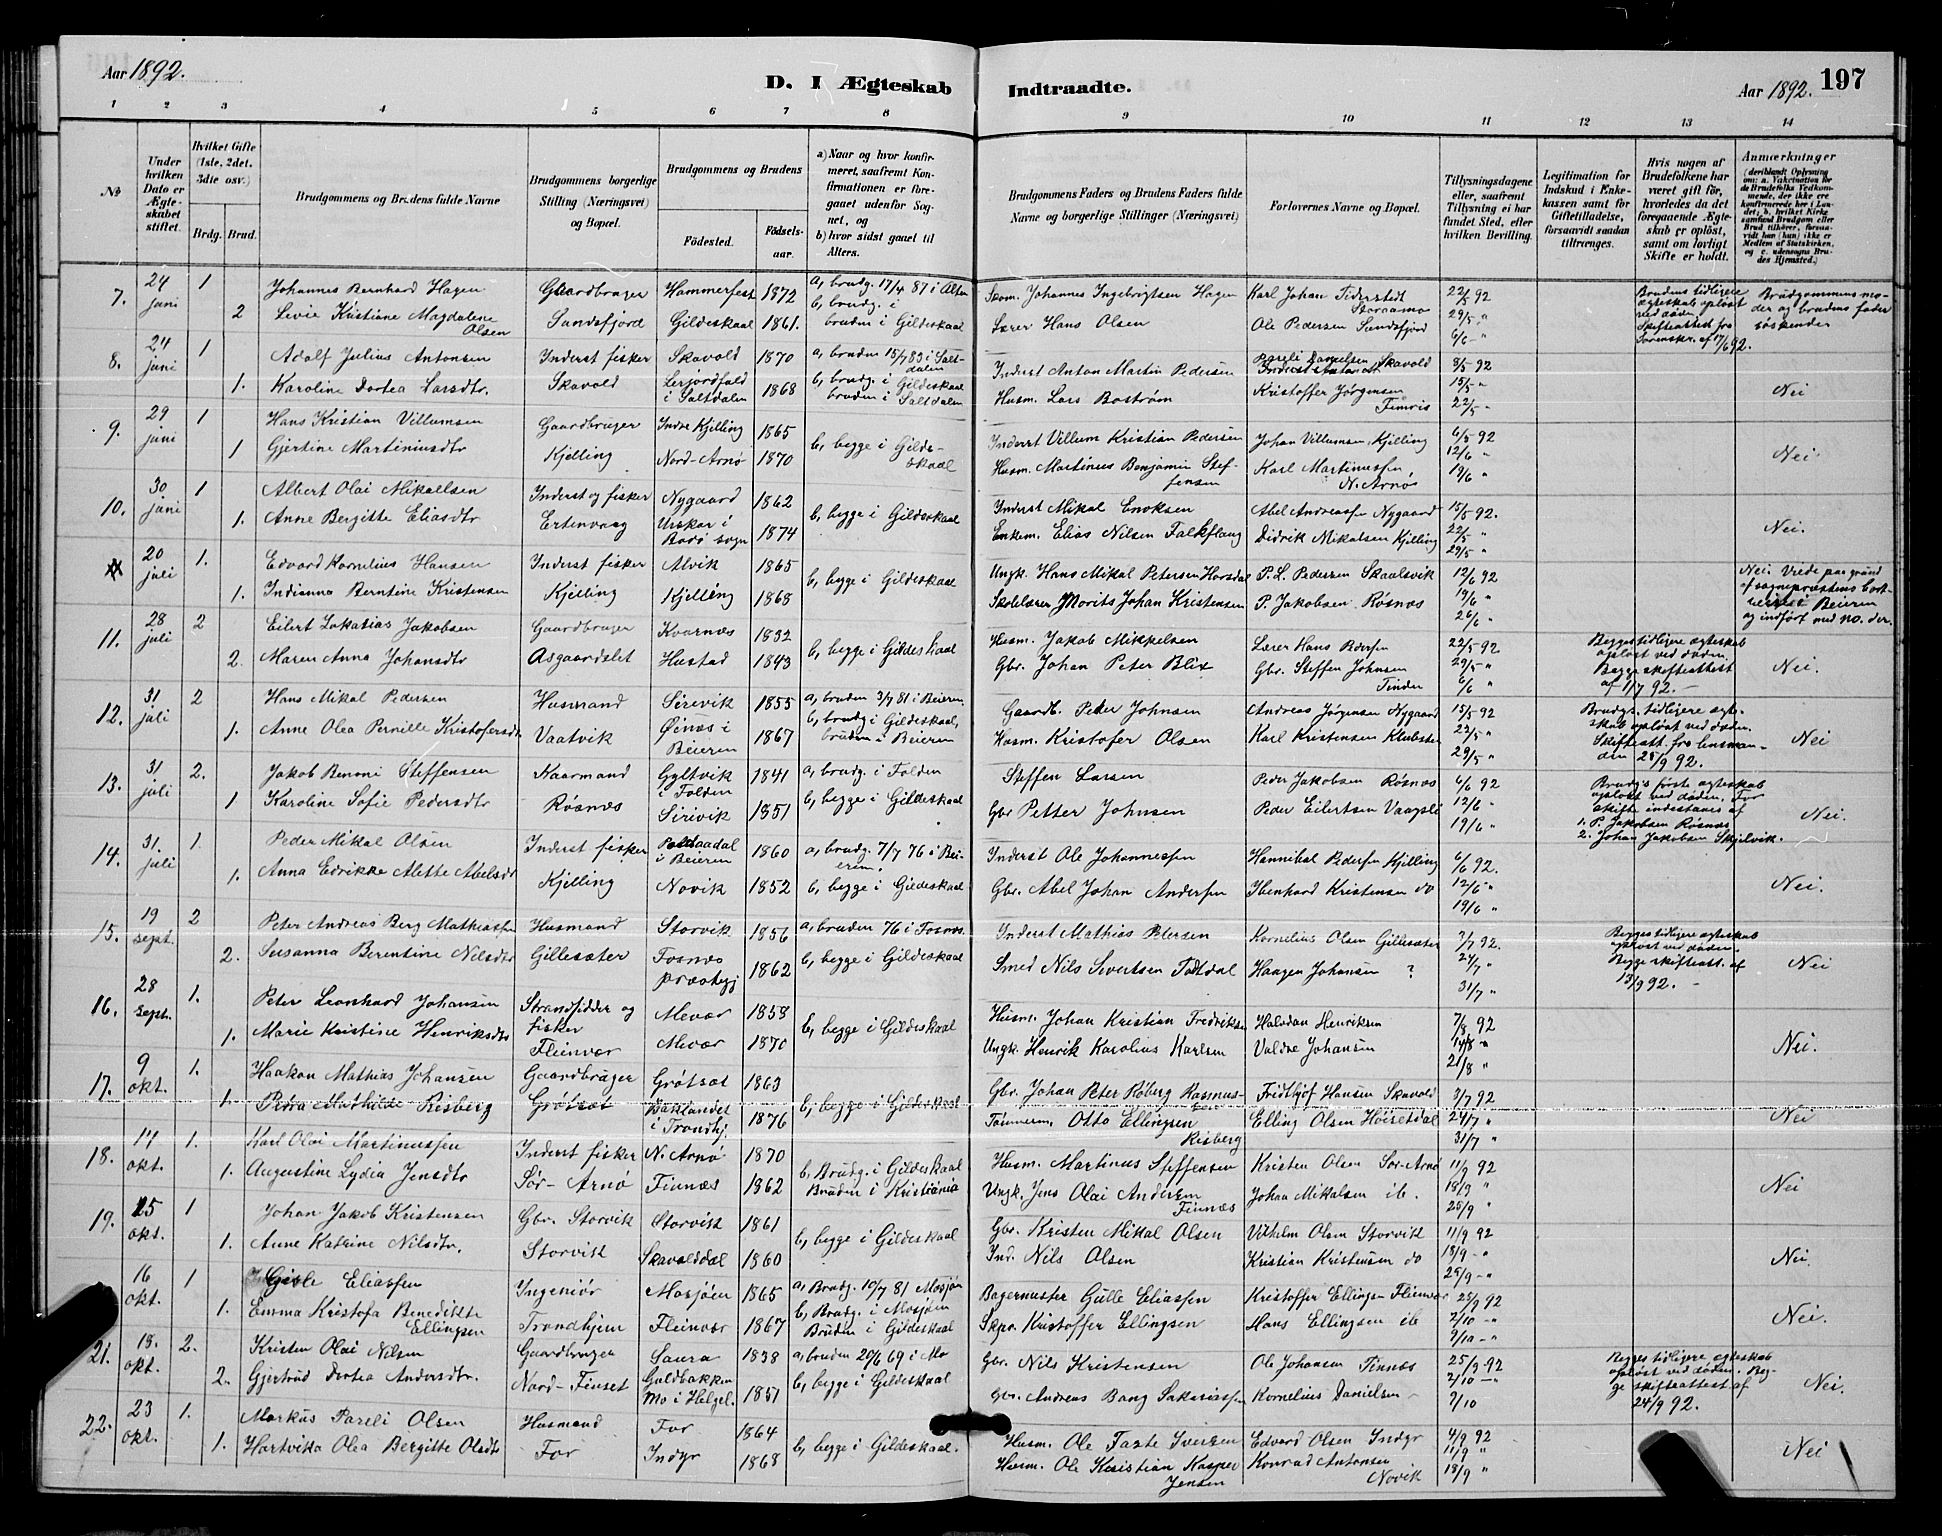 Aar 1892.
D. I Ægteskab Indtraadte.
Aar 1892. 197
1 2 3 4 5 6 7 8 9 10 11 12 13 14
No
Under hvilken Dato er Ægteskabet stiftet.
Hvilket Gifte (1ste, 2det, 3die osv.)
Brdg. Brud.
Brudgommens og Brudens fulde Navne
Brudgommens borgerlige Stilling (Næringsvei) og Bopæl.
Brudgommens og Brudens
Födested. Födselsaar.
a) Naar og hvor konfirmeret, saafremt Konfirmationen er foregaaet udenfor Sognet, og
b) hvor sidst gaaet til Alters.
Brudgommens Faders og Brudens Faders fulde Navne og borgerlige Stillinger (Næringsvei)
Forlovernes Navne og Bopæl.
Tillysningsdagene eller, saafremt Tillysning ei har fundet Sted, efter hvilken Bevilling.
Legitimation for Indskud i Ænkekassen samt for Giftetilladelse, forsaavidt saadan tiltrænges.
Hvis nogen af Brudefolkene har været gift för, hvorledes da det foregaaende Ægteskab er oplöst, samt om lovligt Skifte er holdt.
Anmærkninger
7. 24 juni 1 Johannes Bernhard Hagen Gaardbruger Hammerfest 1872 a, brudg. 17/4 87 i Alten Johannes Ingebrigtsen Hagen Karl Johan 22/5 92
2 Levie Kristiane Magdalene Olsen Sandsfjord Gildeskaal 1861. b, brudg. i bruden i Gildeskaal Lærer Hans Olsen Ole Pedersen Sandsfjord 29/5 " 6/6 - "
Brudens tidligere ægteskab opløst ved døden. Skifteattest fra Sorenskr. af 17/6 92.
Brudgommens moder og brudens fader søskender
8. 24 juni 1 Adolf Julius Antonsen Inderst fisker Skavold 1870 a, bruden 15/7 83 i Saltdalen Inderst Anton Martin Pedersen Pareli Danielsen Skavold 8/5 92
1. Karoline Dortea Larsdtr. Skavold i Saltdalen 1868 b, brudg. i Gildeskaal bruden i Saltdalen Husm. Lars Bostrøm Kristoffer Jørgensen 15/5 " 22/5 " Nei
9. 29 juni 1 Hans Kristian Villumsen Gaardbruger Indre Kjelling 1865 b, begge i Gildeskaal Inderst Villum Kristian Pedersen Johan Villumsen, Kjelling 6/5 92
1 Gjertine Martiniusdtr Kjelling Nord-Arnø 1870 Husm. Martinus Benjamin Steffensen Karl Martinussen, N. Arnøs 12/6 " 19/6 " Nei.
10. 30 juni 1 Albert Olai Mikaelsen Inderst og fisker Nygaard 1862 b, begge i Gildeskaal Inderst Mikal Enoksen Abel Andreassen Nygaard 15/5 92.
1. Anne Bergitte Eliasdtr Ertenvaag i Bodø sogn 1874 Enkem. Elias Nilsen Falkflaug Didrik Mikalsen Kjelling 22/5 " 29/5 " Nei.
20 juli 1. Edvard Kornelius Hansen Inderst fisker Alvik 1865 b, begge i Gildeskaal Ungk. Hans Mikal Petersen Horsdal P. L. Pedersen Skaalsvik 12/6 92
1. Indianna Berntine Kristensen Kjelling Kjelling 1868 Skolelærer Morits Johan Kristensen P. Jakobsen Røsnes 19/6 " 26/6 "
11. 28 juli 2 Eilert Zakarias Jakobsen Gaardbruger Kvarnæs 1832 b, begge i Gildeskaal Husm. Jakob Mikkelsen Lærer Hans Pedersen 22/5-92
2. Maren Anna Johansdtr Asgaardslet Hustad 1843 Gbr. Johan Peter Blix Gbr. Steffen Johnsen 29/5 " 6/6 "
Begges tidligere ægteskab opløst ved døden. Begge skifteattest af 1/7 92. - Nei.
12. 31 juli 2 Hans Mikal Pedersen Husmand Sirevik 1855 a, bruden 3/7 81 i Beieren Gaardb. Peder Johnsen Andreas Jørgensen Nygaard 15/5 92
1. Anne Olea Pernille Kristofersdtr Vaatvik Øines i Beieren 1867 b, brudg i Gildeskaal, bruden i Beieren Husm. Kristofer Olsen Karl Kristensen 22/5 " 29/5 "
Brudgs. tidligere ægteskab opløst ved døden. Skifteatt. fra lensmanden 28/9 92. Nei
13. 31 juli 2. Jakob Benoni Steffensen Kaarmand Gyltvik i Folden 1841 a, brudg. i Folden Steffen Larsen Peder Jakobsen Røsnæs 6/6 92
1 Karoline Sofie Pedersdtr Røsnæs Sirivik 1851 b, begge i Gildeskaal Gbr Petter Johnsen Peder Eilertsen 12/6 " 19/6 "
Brudg's første ægteskab opløst ved døden. For skifte indestaaes af 1. P. Jakobsen Røsnæs 2. Johan Jakobsen Skjelvik. Nei.
14. 31. juli 1. Peder Mikal Olsen Inderst fisker i Beieren 1860 a, brudg. 7/7 76 i Beieren. Inderst Ole Johannessen Hannibal Pedersen Kjelling 6/6 92.
1. Anna Edrikke Alette Abelsdtr Kjelling Novik 1852 b, begge i Gildeskaal Gbr. Abel Johan Andersen Ibenhard Kristensen do 12/6 " 19/6 " Nei.
15. 19 sept. 2 Peter Andreas Berg Mathiassen Husmand Storvik 1856 a, bruden 76 i Fosnæs. Inderst Mathias Petersen Kornelius Olsen Gillesæter 7/7 92.
2. Susanna Berentine Nilsdtr Gillesæter Fosnæs præstegj 1862 b, begge i Gildeskaal Smed Nils Sivertsen Haagen Johansen ? 24/7 " 31/7 "
Begges tidligere ægteskab opløst ved døden. Begge skifteatt. af 13/9 92. - Nei
16. 28 sept. 1. Peter Leonhard Johansen Strandsidder og fisker Mevær 1858 b, begge i Gildeskaal Husm. Johan Kristian Fredriksen Halvdan Henriksen 7/8 92
1. Marie Kristine Henriksdtr Fleinvær Mevær 1870 Ungk. Henrik Karolius Karlsen Valdre Johansen 14/8 " 21/8 " Nei.
17. 9 okt. 1. Haakon Mathias Johansen Gaardbruger Grøtset 1863 b, begge i Gildeskaal Gbr. Johan Peter Røberg Rasmussen Fridthjof Hansen Skavold 3/7 92
1. Petra Mathilde Risberg Grøtset Baklandet i Trondhj. 1876 Tømmerm. Otto Ellingsen Risberg Elling Olsen 24/7 " 31/7 " Nei
18. 14 okt. 1. Karl Olai Martinussen Inderst fisker N. Arnø 1870 b, Brudg. i Gildeskaal Husm. Martinus Steffensen Kristen Olsen Sør-Arnø 11/9 92
1. Augustine Lydia Jensdtr Sør-Arnø Finnæs 1862 Bruden i Kristiania Ungk. Jens Olai Andersen Finnæs Johan Mikalsen ib. 18/9 " 25/9 " Nei
19. 15 okt. 1 Johan Jakob Kristensen Gbr. Storvik Storvik 1861 b, begge i Gildeskaal Gbr. Kristen Mikal Olsen Vilhelm Olsen Storvik 11/9 92
1. Anne Katrine Nilsdtr. Storvik Skavolddal 1860 Ind. Nils Olsen Kristian Kristensen do 18/9 - " 25/9 - " Nei.
16 okt. 1 Gisle Eliassen Ingeniør Mosjøen 1865 a, Brudg. 10/7 81 Mosjøn Bagermester Gulle Eliassen Kristoffer Ellingsen Fleinvær 25/9 92
1. Emma Kristofa Benedikte Ellingsen Trondhjem Fleinvær 1867 b. Brudg. i Mosjøen Bruden i Gildeskaal Skpr. Kristoffer Ellingsen Hans Ellingsen ib 2/10 - " 9/10 - " Nei.
21. 18. okt. 2. Kristen Olai Nilsen Gaardbruger Saura 1838 a, bruden 20/6 69 i Mo Gbr. Nils Kristensen Ole Johansen Finnæs 25/9 - 92
2. Gjertrud Dortea Andersdtr. Nord-Finset Guldbakken Mo i Helgel. 1851 b, begge i Gildeskaal Gbr. Andreas Bang Sakariassen Kornelius Danielsen 2/10 - " 9/10
Begges tidligere ægteskab opløst ved døden. Begge skifteattest af 24/9 92. Nei.
22. 23 okt. 1. Markus Pareli Olsen Husmand For 1864 b, begge i Gildeskaal. Husm. Ole Tazte Iversen Edvard Olsen Indyr 4/9 92
1. Hartvikka Olea Bergitte Olsdtr For Indyr 1868 Husm. Ole Kristian Kasper Jensen Konrad Antonsen Novik 11/9 " 18/9 " Nei